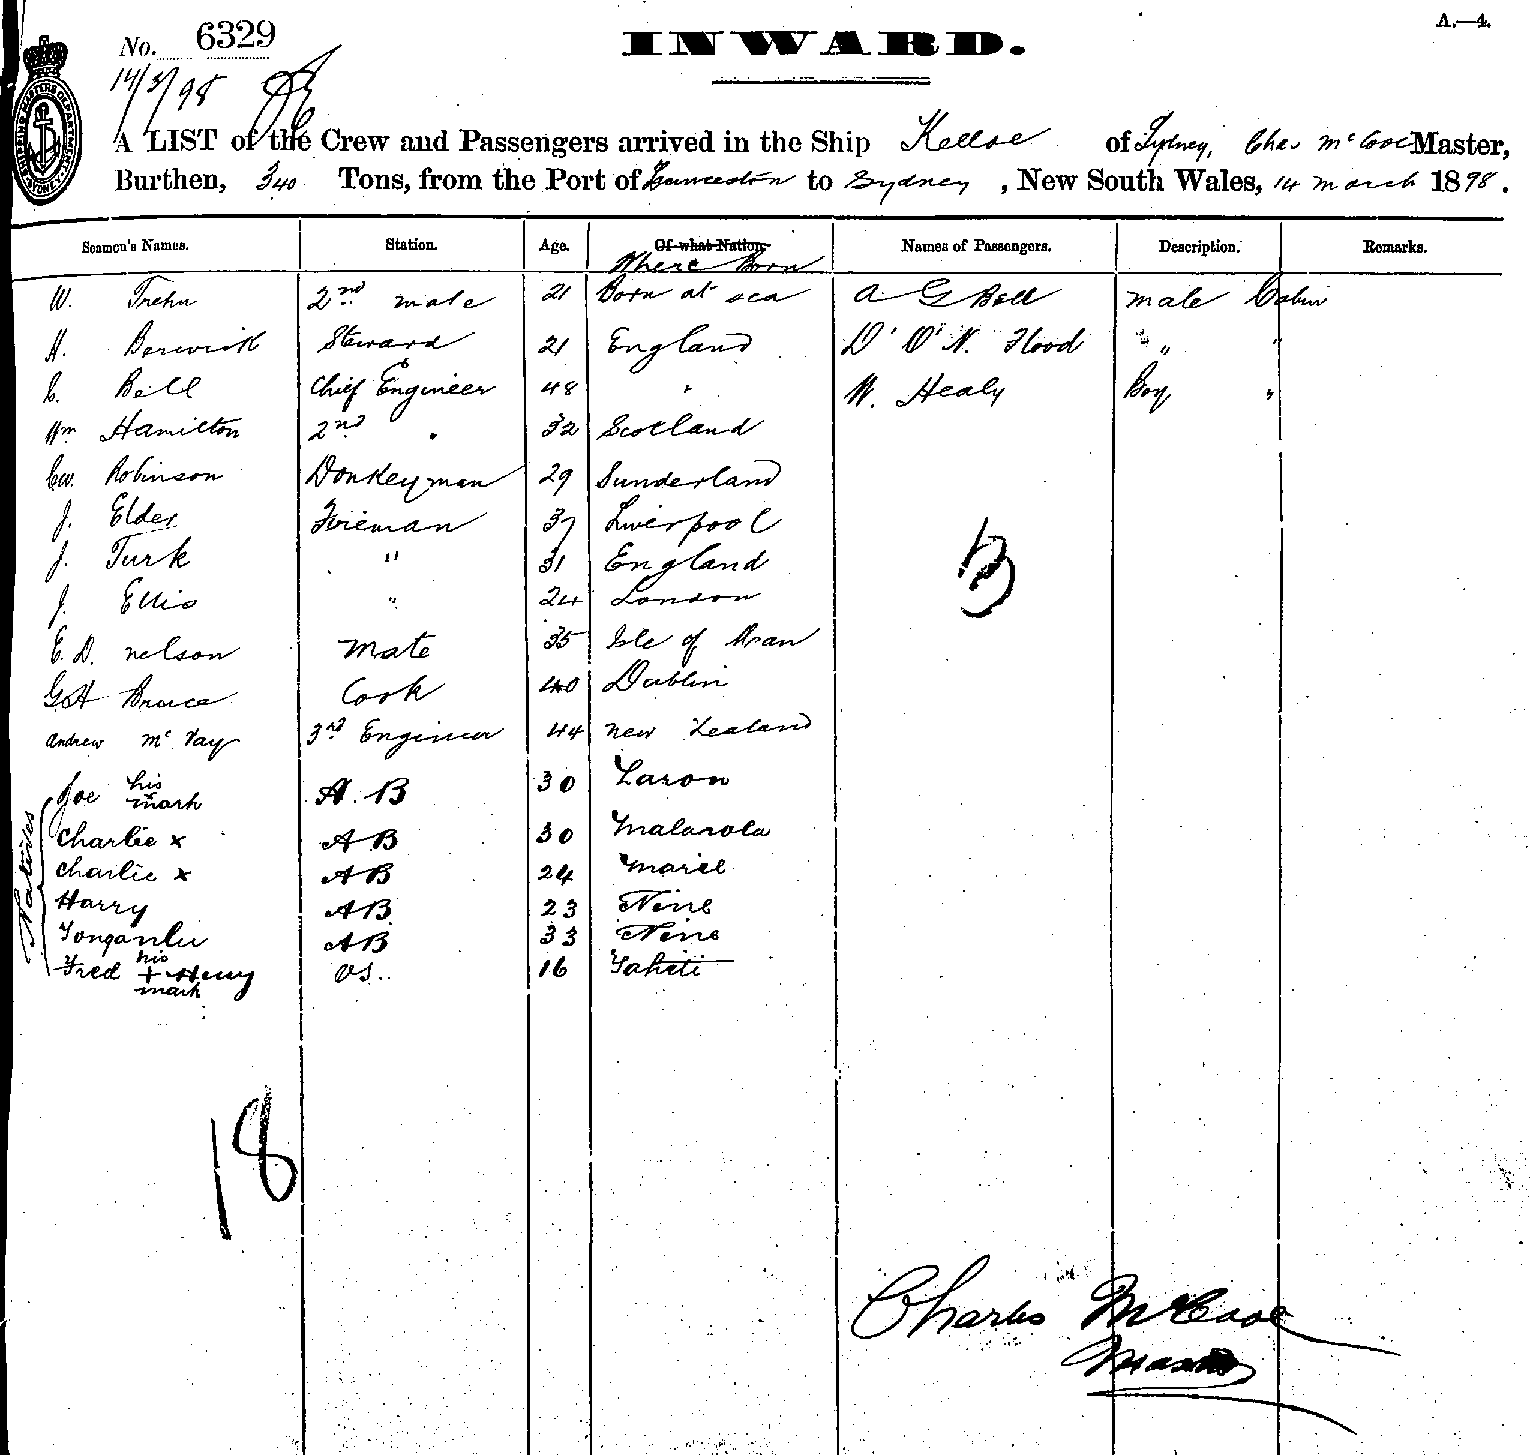 A.—4.
No. 6329
INWARD.
14/3/98
A LIST of the Crew and Passengers arrived in the Ship Kelloe of Sydney, Chas McCooe Master,
Burthen, 340 Tons, from the Port of Launceston to Sydney, New South Wales, 14 March 1898.
Seamen's Names. Station. Age. Of what Nation. Names of Passengers. Description. Remarks.
Where Born
W. Trehn 2nd mate 21 Born at sea A G Bell male Cabin
H. Berwick Steward 21 England D' O'N. Flood " " "
C. Bell Chief Engineer 48 " W. Healy Boy "
Wm Hamilton 2nd " 32 Scotland
Robinson Donkeyman 29 Sunderland
J. Elder Fireman 37 Liverpool
J. Turk " 31 England
J. Ellis " 24 London
E. D. Nelson Mate 35 Isle of Aran
G H Bruce Cook 40 Dublin
Andrew McVay 3rd Engineer 44 New Zealand
Natives
Joe his mark A. B 30
Charlie x A B 30
Charlie x A B 24
Harry A B 23 Nine
A B 33 Nine
Fred his + Henry mark OS.. 16 Tahiti
3
18
Charles McCooe
Master